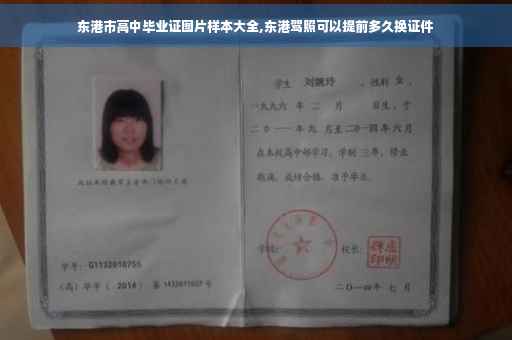 东港市高中毕业证图片样本大全,东港驾照可以提前多久换证件
学生 刘婉玲 ,性别 女 ,
一九九六 年 二 月 日生,于
二〇一一 年 九 月至 二〇一四 年 六 月
在本校高中部学习,学制 三 年,修业
期满,成绩合格,准予毕业。
学号: G1132010755
(高)毕字( 2014 )第 1432011007 号
学校:
校长:
二〇一四年 七 月